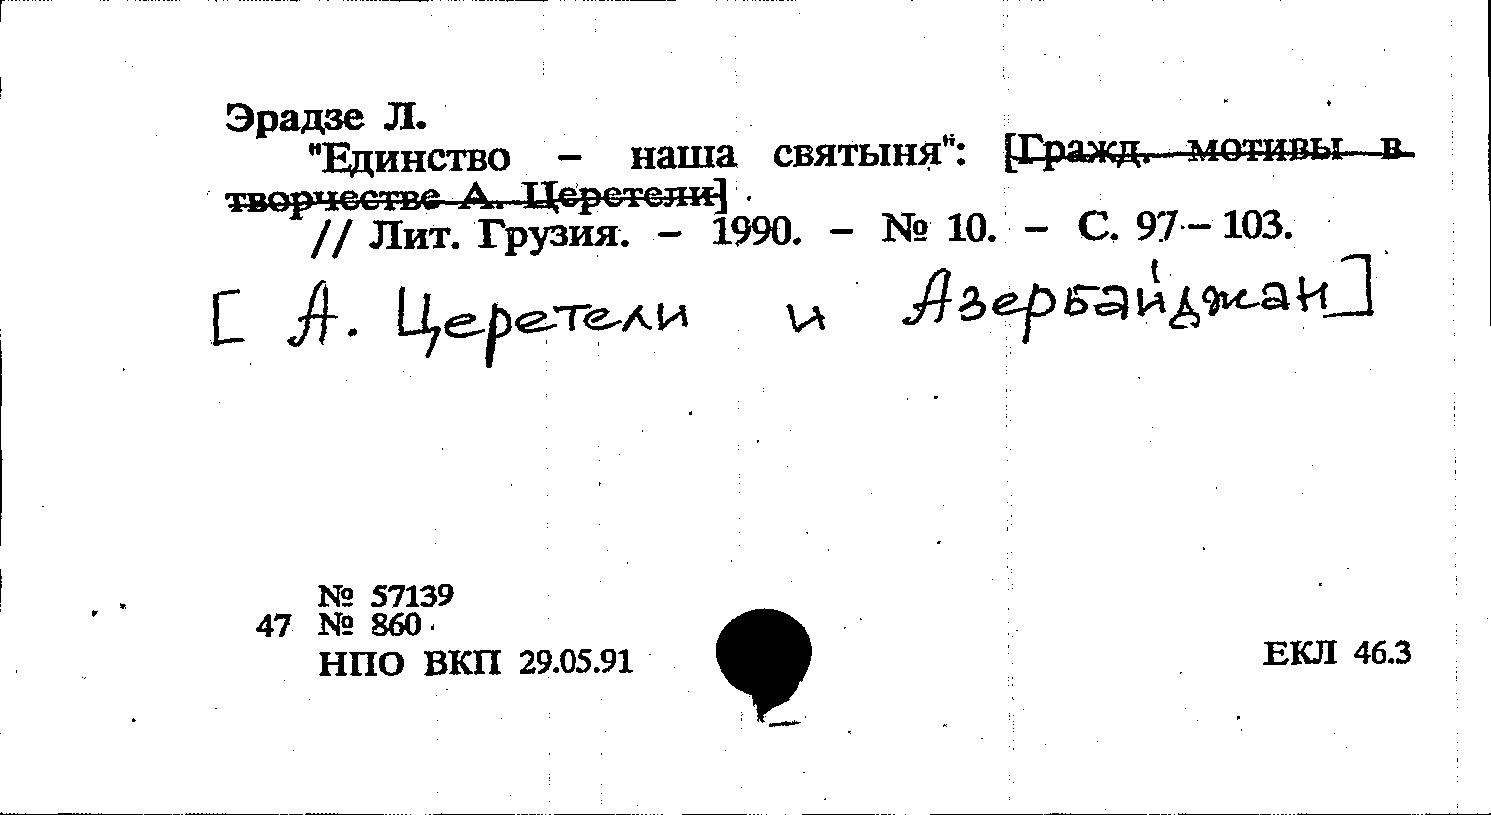 Эрадзе Л.
"Единство – наша святыня": [Гражд. мотивы в
творчестве А. Церетели]
// Лит. Грузия. – 1990. – № 10. – С. 97–103.
[ А. Церетели и Азербайджан]
№ 57139
47 № 860
НПО ВКП 29.05.91
ЕКЛ 46.3